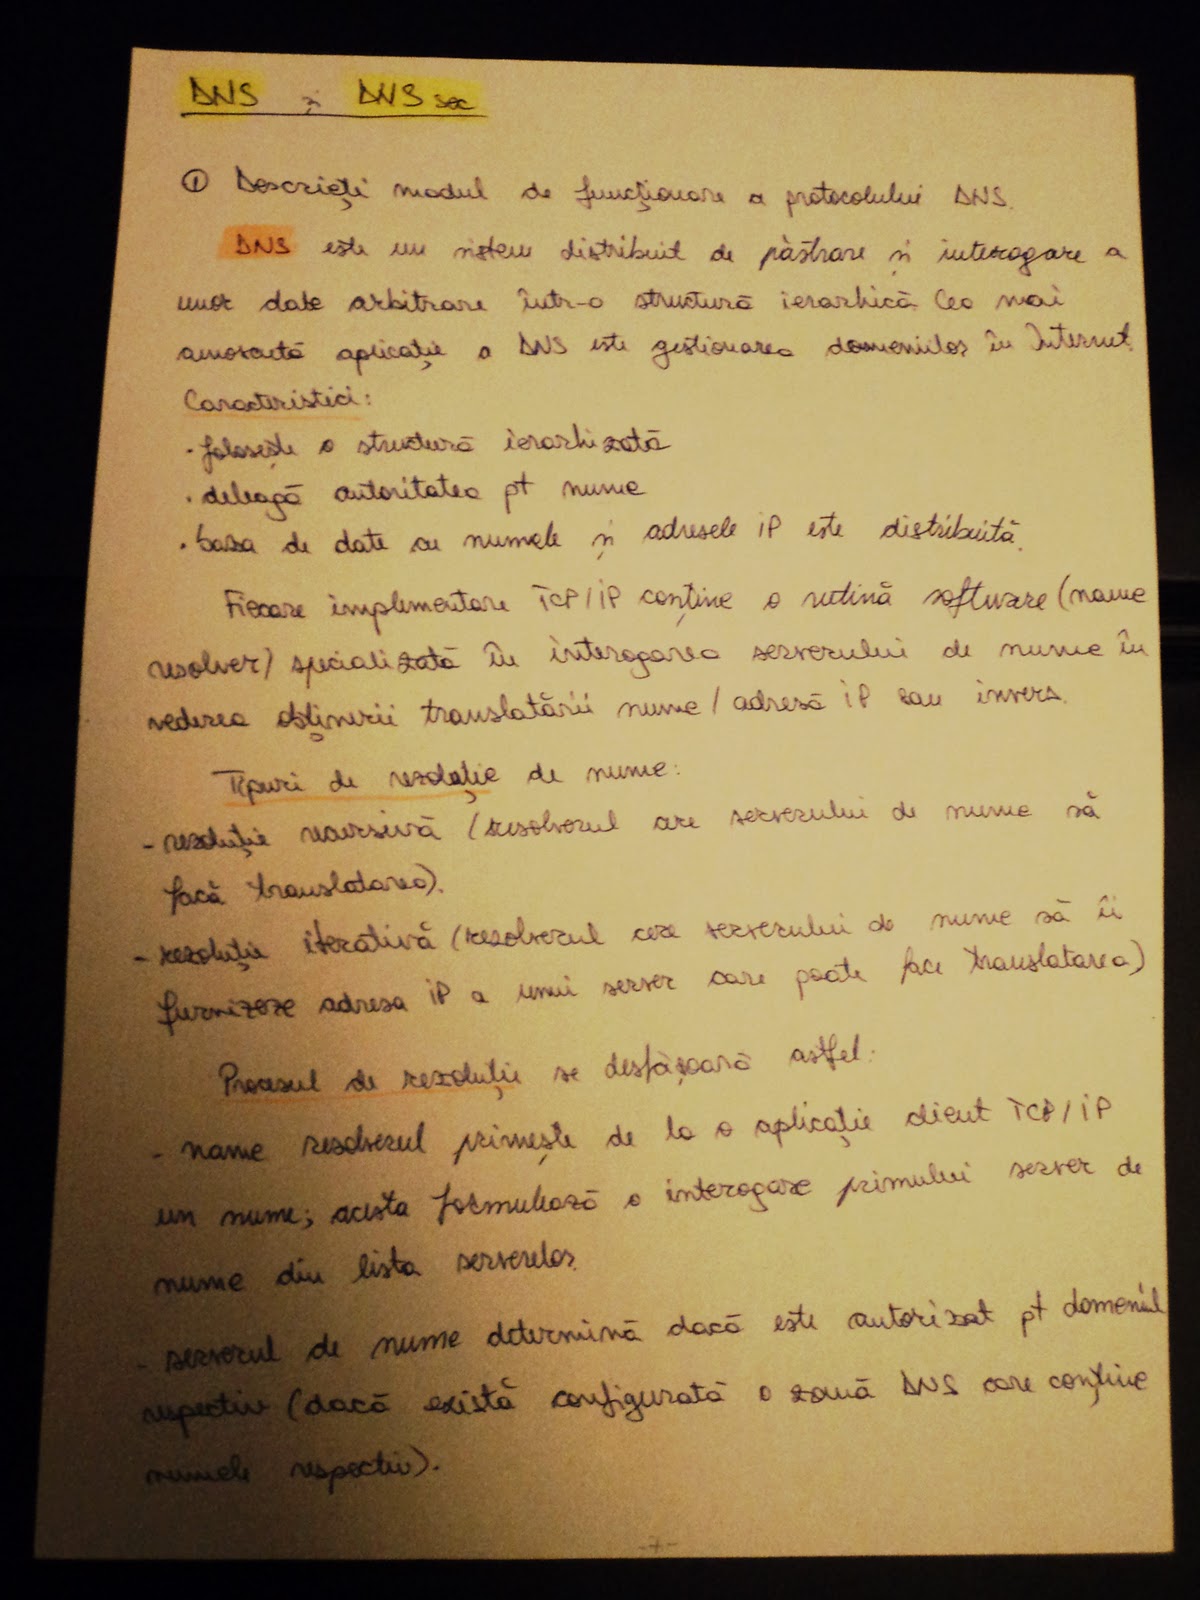 DNS și DNS sec
① Descrieți modul de funcționare a protocolului DNS.
DNS este un sistem distribuit de păstrare și interogare a
unor date arbitrare într-o structură ierarhică. Cea mai
cunoscută aplicație a DNS este gestionarea domeniilor în Internet.
Caracteristici:
• folosește o structură ierarhizată
• deleagă autoritatea pt nume
• baza de date cu numele și adresele IP este distribuită.
Fiecare implementare TCP/IP conține o rutină software (name
resolver) specializată în interogarea serverului de nume în
vederea obținerii translatării nume/adresă IP sau invers.
Tipuri de rezoluție de nume:
- rezoluție recursivă (resolverul cere serverului de nume să
facă translatarea).
- rezoluție iterativă (resolverul cere serverului de nume să îi
furnizeze adresa IP a unui server care poate face translatarea)
Procesul de rezoluție se desfășoară astfel:
- name resolverul primește de la o aplicație client TCP/IP
un nume; acesta formulează o interogare primului server de
nume din lista serverelor.
- serverul de nume determină dacă este autorizat pt domeniul
respectiv (dacă există configurată o zonă DNS care conține
numele respectiv).
-7-